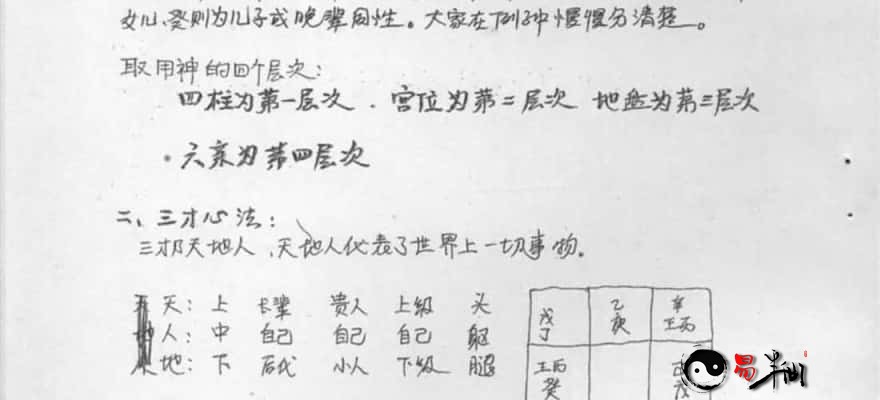 女儿、癸则为儿子或晚辈同性。大家在例子中慢慢分清楚。
取用神的四个层次:
四柱为第一层次.宫位为第二层次 地盘为第三层次
·六亲为第四层次
二、三才心法:
三才即天地人,天地人代表了世界上一切事物。
天:上 长辈 贵人 上级 头
人:中 自己 自己 自己 躯
地:下 后代 小人 下级 腿
戊 乙 辛
丁 庚 壬丙
壬丙
癸
易半仙